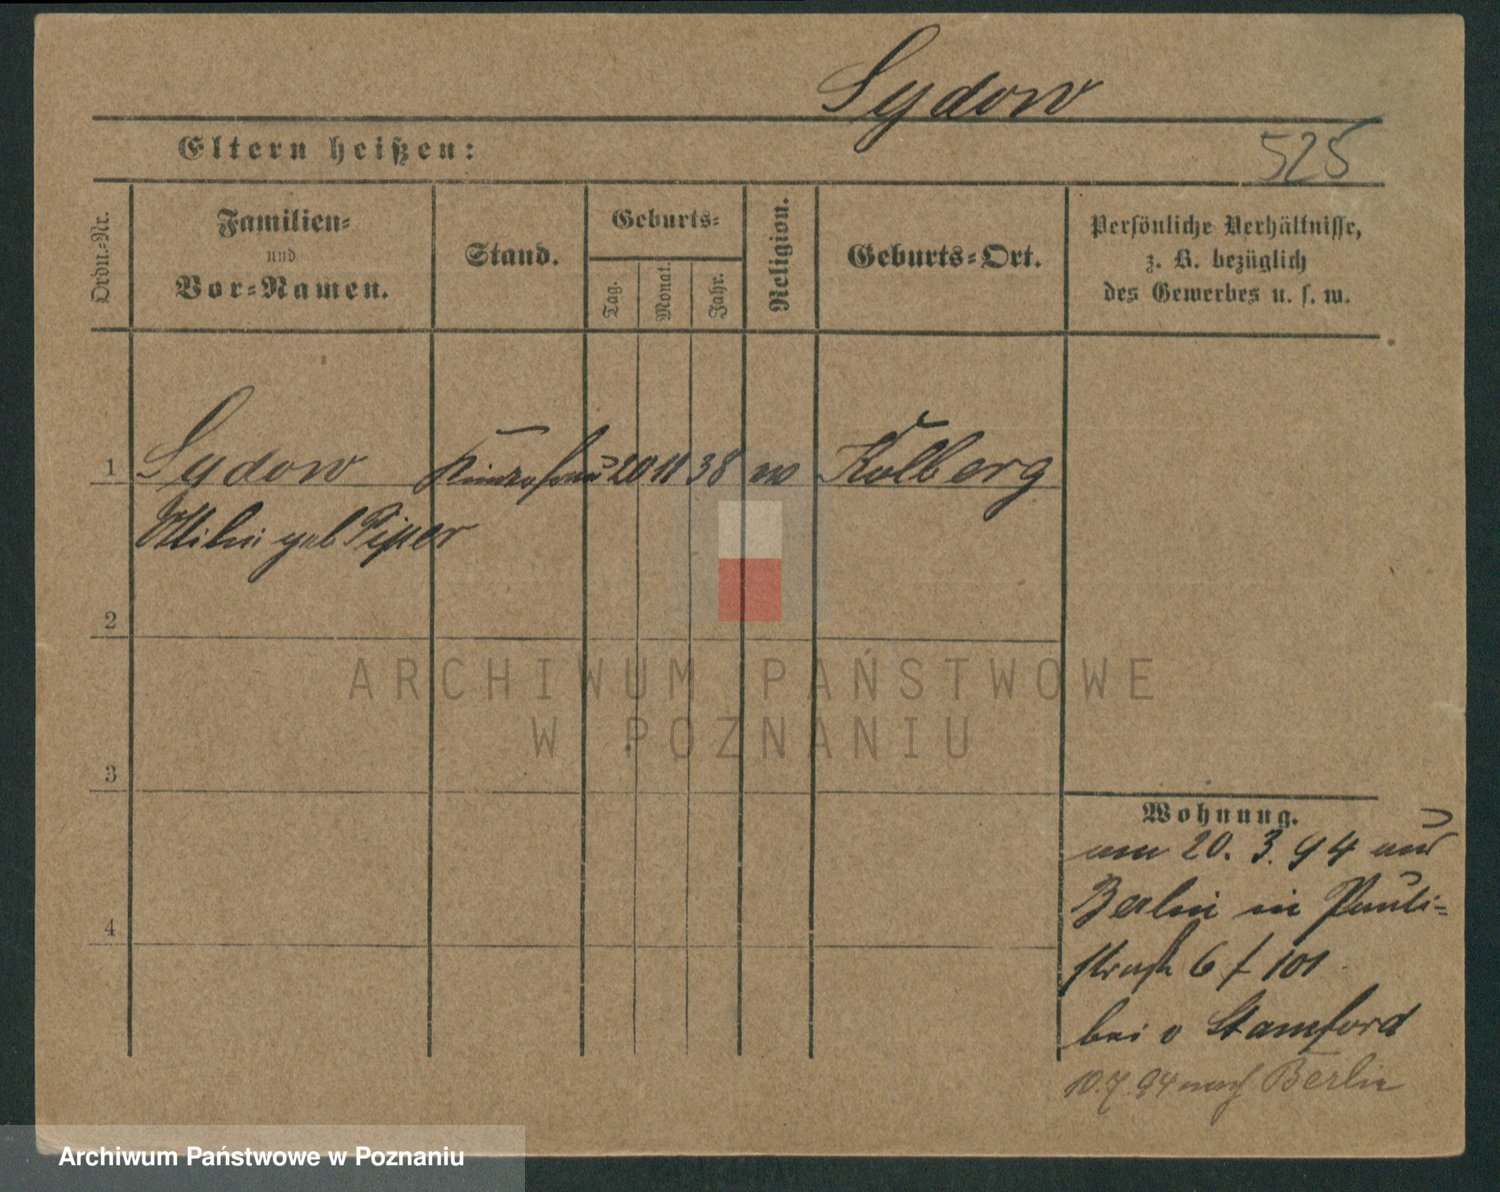 Sydow
525
Eltern heißen:
Ordn.-Nr.
Familien-
und
Vor-Namen.
Stand.
Geburts-
Tag.
Monat.
Jahr.
Religion.
Geburts-Ort.
Persönliche Verhältnisse,
z. B. bezüglich
des Gewerbes u. s. w.
1 Sydow Kinderfrau 20 11 38 ev Kolberg
geb Piper
2
3
4
ARCHIWUM PAŃSTWOWE
W POZNANIU
Wohnung.
am 20. 3. 94 aus
Berlin in Pauli-
straße 6 / 101
bei v Stamford
10.7.94 nach Berlin
Archiwum Państwowe w Poznaniu